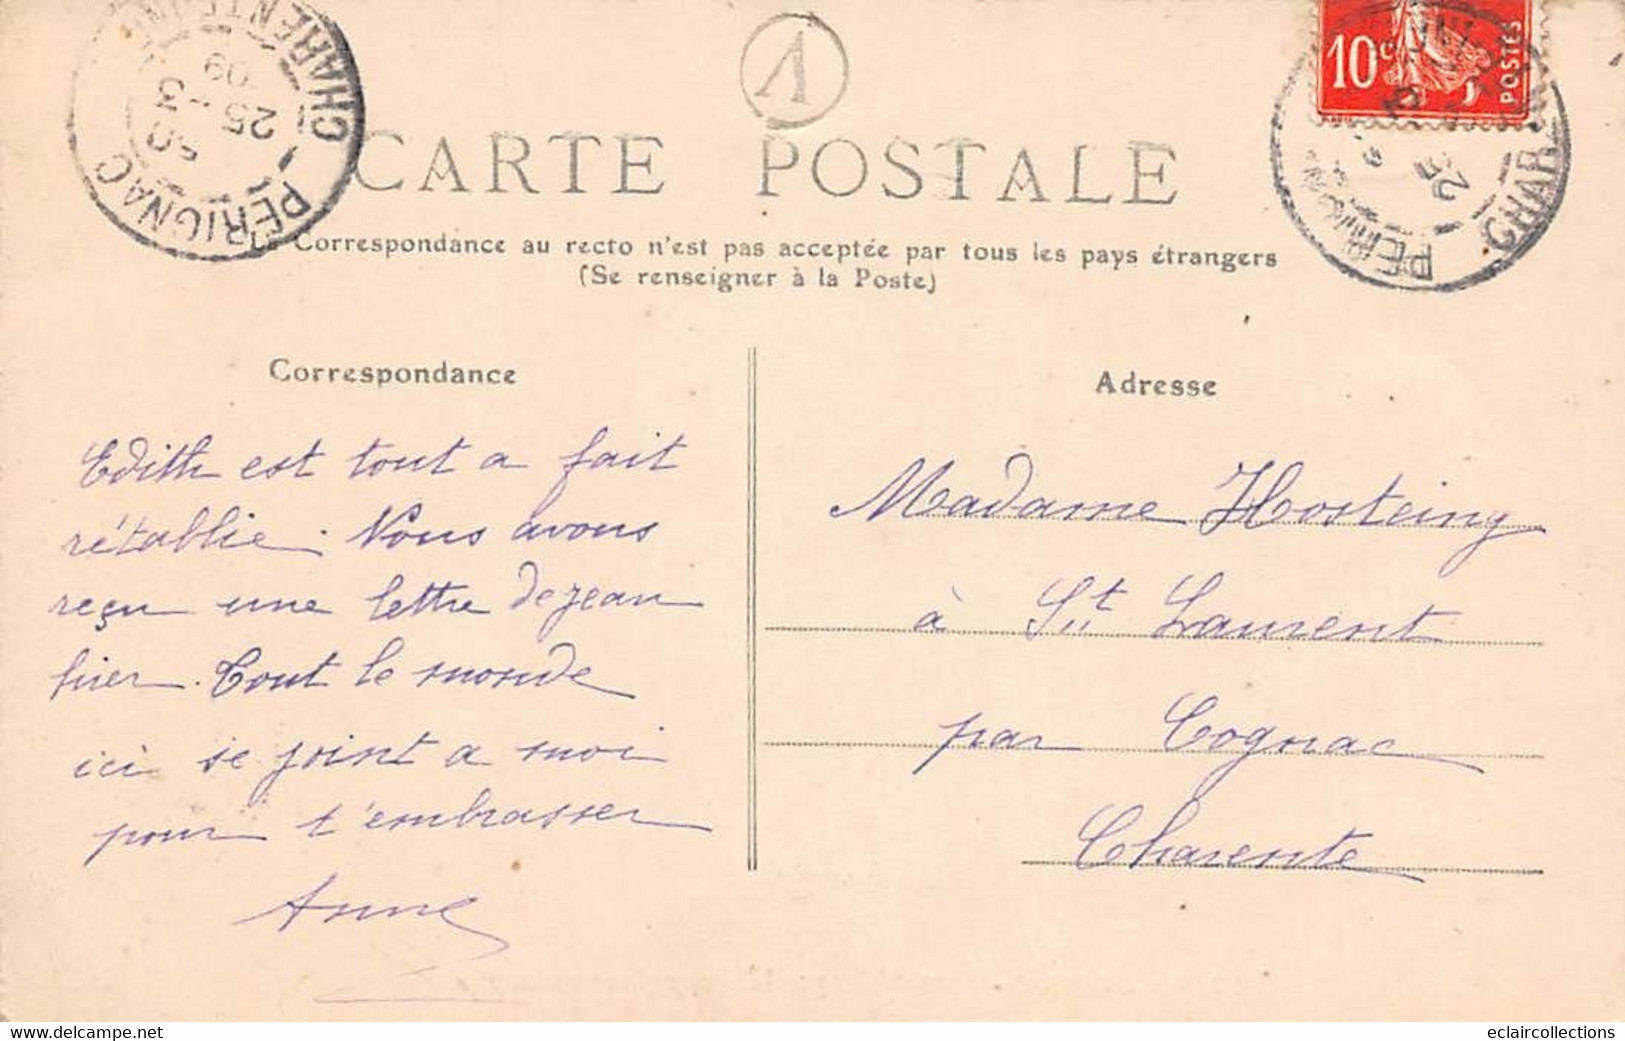 CHARENTE INF
PERIGNAC
25 -3
09
A
10c
POSTES
PERIGNAC
CHAR
CARTE POSTALE
La Correspondance au recto n'est pas acceptée par tous les pays étrangers
(Se renseigner à la Poste)
Correspondance
Edith est tout a fait
rétablie. Nous avons
reçu une lettre de jean
hier. Tout le monde
ici se joint a moi
pour t'embrasser
Anne
Adresse
Madame Hosteing
à St Laurent
par Cognac
Charente
www.delcampe.net
eclaircollections